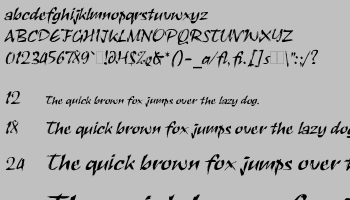 abcdefghijklmnopqrstuvwxyz
ABCDEFGHIJKLMNOPQRSTUVWXYZ
0123456789
12 The quick brown fox jumps over the lazy dog.
18 The quick brown fox jumps over the lazy dog
24 The quick brown fox jumps over the